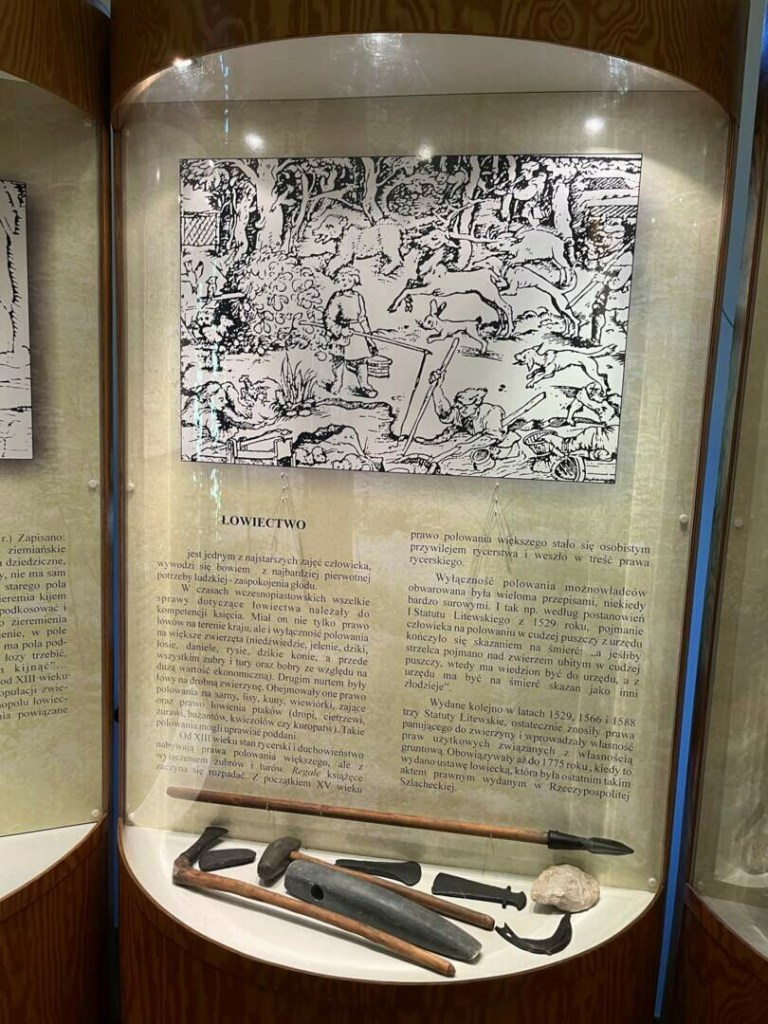 r.) Zapisano:
ziemiańskie
a dziedziczne,
y, nie ma sam
starego pola
ieremia kijem
podkosować i
o zieremienia
enie, w pole
ma pola pod-
łozy trzebić,
kijnąć"...
od XIII wieku
opulacji zwie-
nopolu łowiec-
nia powiązane
ŁOWIECTWO
jest jednym z najstarszych zajęć człowieka,
wywodzi się bowiem z najbardziej pierwotnej
potrzeby ludzkiej - zaspokojenia głodu.
W czasach wczesnopiastowskich wszelkie
sprawy dotyczące łowiectwa należały do
kompetencji księcia. Miał on nie tylko prawo
łowów na terenie kraju, ale i wyłączność polowania
na większe zwierzęta (niedźwiedzie, jelenie, dziki,
łosie, daniele, rysie, dzikie konie, a przede
wszystkim żubry i tury oraz bobry ze względu na
dużą wartość ekonomiczną). Drugim nurtem były
łowy na drobną zwierzynę. Obejmowały one prawo
polowania na sarny, lisy, kuny, wiewiórki, zające
oraz prawo łowienia ptaków (dropi, cietrzewi,
żurawi, bażantów, kwiczołów czy kuropatw). Takie
polowania mogli uprawiać poddani.
Od XIII wieku stan rycerski i duchowieństwo
nabywają prawa polowania większego, ale z
wyłączeniem żubrów i turów. Regale książęce
zaczyna się rozpadać. Z początkiem XV wieku
prawo polowania większego stało się osobistym
przywilejem rycerstwa i weszło w treść prawa
rycerskiego.
Wyłączność polowania możnowładców
obwarowana była wieloma przepisami, niekiedy
bardzo surowymi. I tak np. według postanowień
I Statutu Litewskiego z 1529 roku, pojmanie
człowieka na polowaniu w cudzej puszczy z urzędu
kończyło się skazaniem na śmierć: „a jeśliby
strzelca pojmano nad zwierzem ubitym w cudzej
puszczy, wtedy ma wiedzion być do urzędu, a z
urzędu ma być na śmierć skazan jako inni
złodzieje"
Wydane kolejno w latach 1529, 1566 i 1588
trzy Statuty Litewskie, ostatecznie znosiły prawa
panującego do zwierzyny i wprowadzały własność
praw użytkowych związanych z własnością
gruntową. Obowiązywały aż do 1775 roku, kiedy to
wydano ustawę łowiecką, która była ostatnim takim
aktem prawnym wydanym w Rzeczypospolitej
Szlacheckiej.